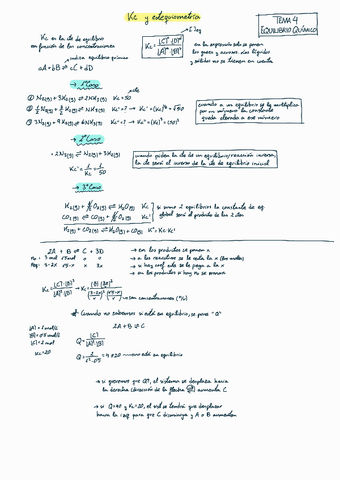 Kc y estequiometría
TEMA 4
EQUILIBRIO QUÍMICO
Kc es la cte de equilibrio
en función de las concentraciones
indica equilibrio químico
aA + bB ⇌ cC + dD
Kc = [C]^c · [D]^d / [A]^a · [B]^b
en la expresión solo se ponen
los gases y acuosos. Los líquidos
y sólidos no se tienen en cuenta
→ 1º Caso
① N2(g) + 3H2(g) ⇌ 2NH3(g) Kc = 50
② 1/2 N2(g) + 3/2 H2(g) ⇌ NH3(g) Kc' = ? → Kc' = (Kc)^1/2 = √50
③ 3N2(g) + 9H2(g) ⇌ 6NH3(g) Kc'' = ? → Kc'' = (Kc)^3 = (50)^3
cuando a un equilibrio se le multiplica
por un número la constante
queda elevada a ese número
→ 2º Caso
2NH3(g) ⇌ N2(g) + 3H2(g)
Kc' = 1/Kc = 1/50
cuando piden la cte de un equilibrio/reacción inversa,
la cte será el inverso de la cte de equilibrio inicial
→ 3º Caso
H2(g) + 1/2 O2(g) ⇌ H2O(g) Kc
CO2(g) ⇌ CO(g) + 1/2 O2(g) Kc'
H2(g) + CO2(g) ⇌ H2O(g) + CO(g) K'' = Kc · Kc'
si sumo 2 equilibrios la constante de eq
global será el producto de las 2 ctes
2A + B ⇌ C + 3D
→ en los productos se ponen x
→ en los reactivos se le resta la x (los moles)
→ si hay coef. solo se le pega a la x
→ en los productos si hay no se ponen
* Cuando no sabemos si está en equilibrio, se pone "Q"
2A + B ⇌ C
[A] = 1 mol/L
[B] = 0'5 mol/L
[C] = 2 mol
Kc = 20
Q = [C] / [A]^2 · [B]
Q = 2 / 1^2 · 0'5 = 4 ≠ 20 no está en equilibrio
→ si queremos que Q↑, el sistema se desplaza hacia
la derecha (dirección de la flecha) aumenta C
→ si Q = 40 y Kc = 20, el eq se tendrá que desplazar
hacia la izq para que C disminuya y A y B aumenten